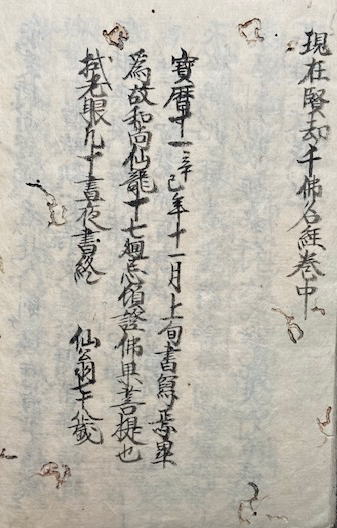 現在賢劫千佛名経巻中
寶暦十一辛巳年十一月上旬書寫焉畢
爲故和尚仙龍十七廻忌頓證佛果菩提也
拭老眼凡十晝夜書終 仙翁 歳